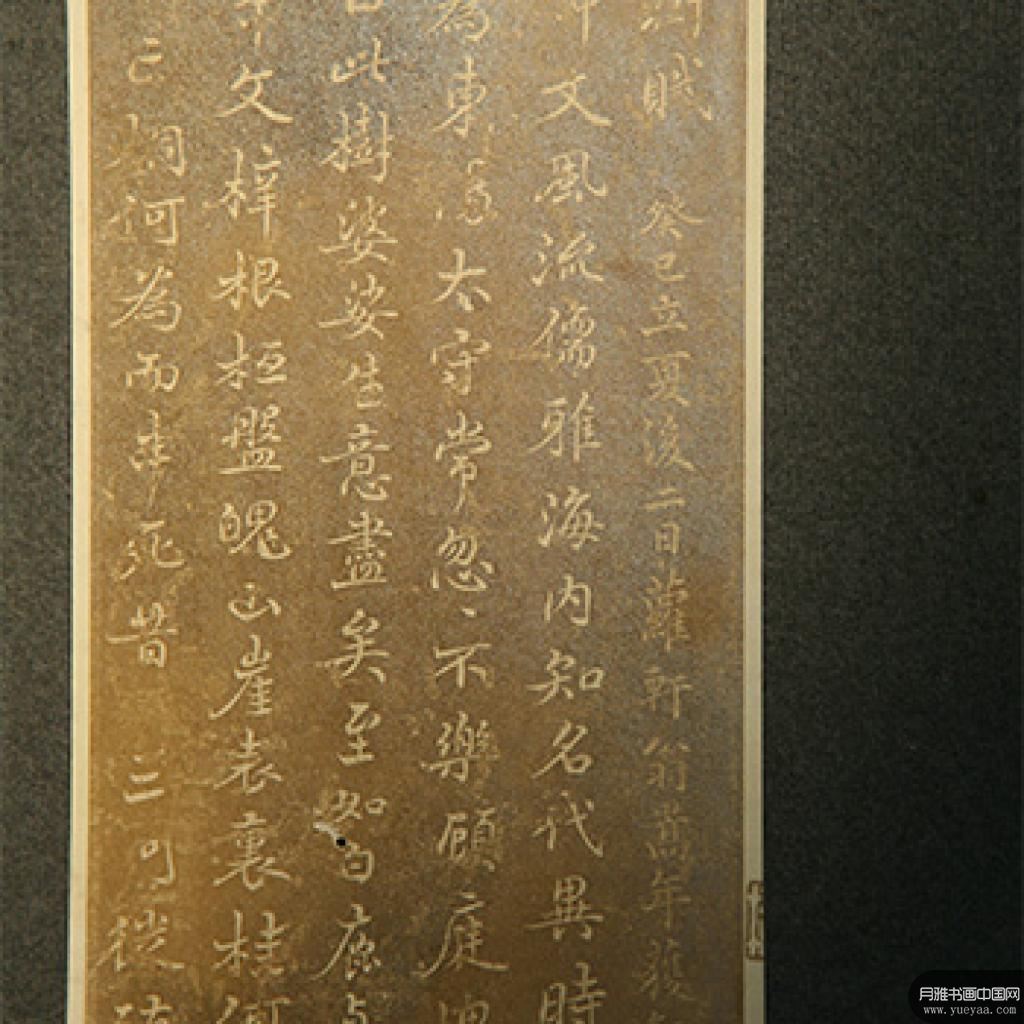 賦 癸巳立夏後二日蘿軒翁嵩年
文風流儒雅海內知名代異時
為東陽太守常忽〻不樂顧庭槐
此樹婆娑生意盡矣至如白鹿貞
文梓根柢盤魄山崖表裏桂何
亡桐何為而半死昔 三河徙
月雅书画中国网
www.yueyaa.com